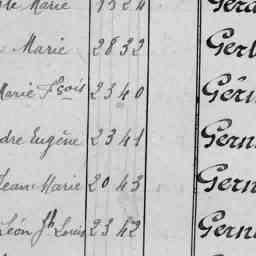 Marie 1324
Marie 2832 Gerl
Marie Fçois 2340 Gér
dre Eugène 2341 Gern
Jean Marie 2043 Gern
Léon Jh Louis 2342 Gern